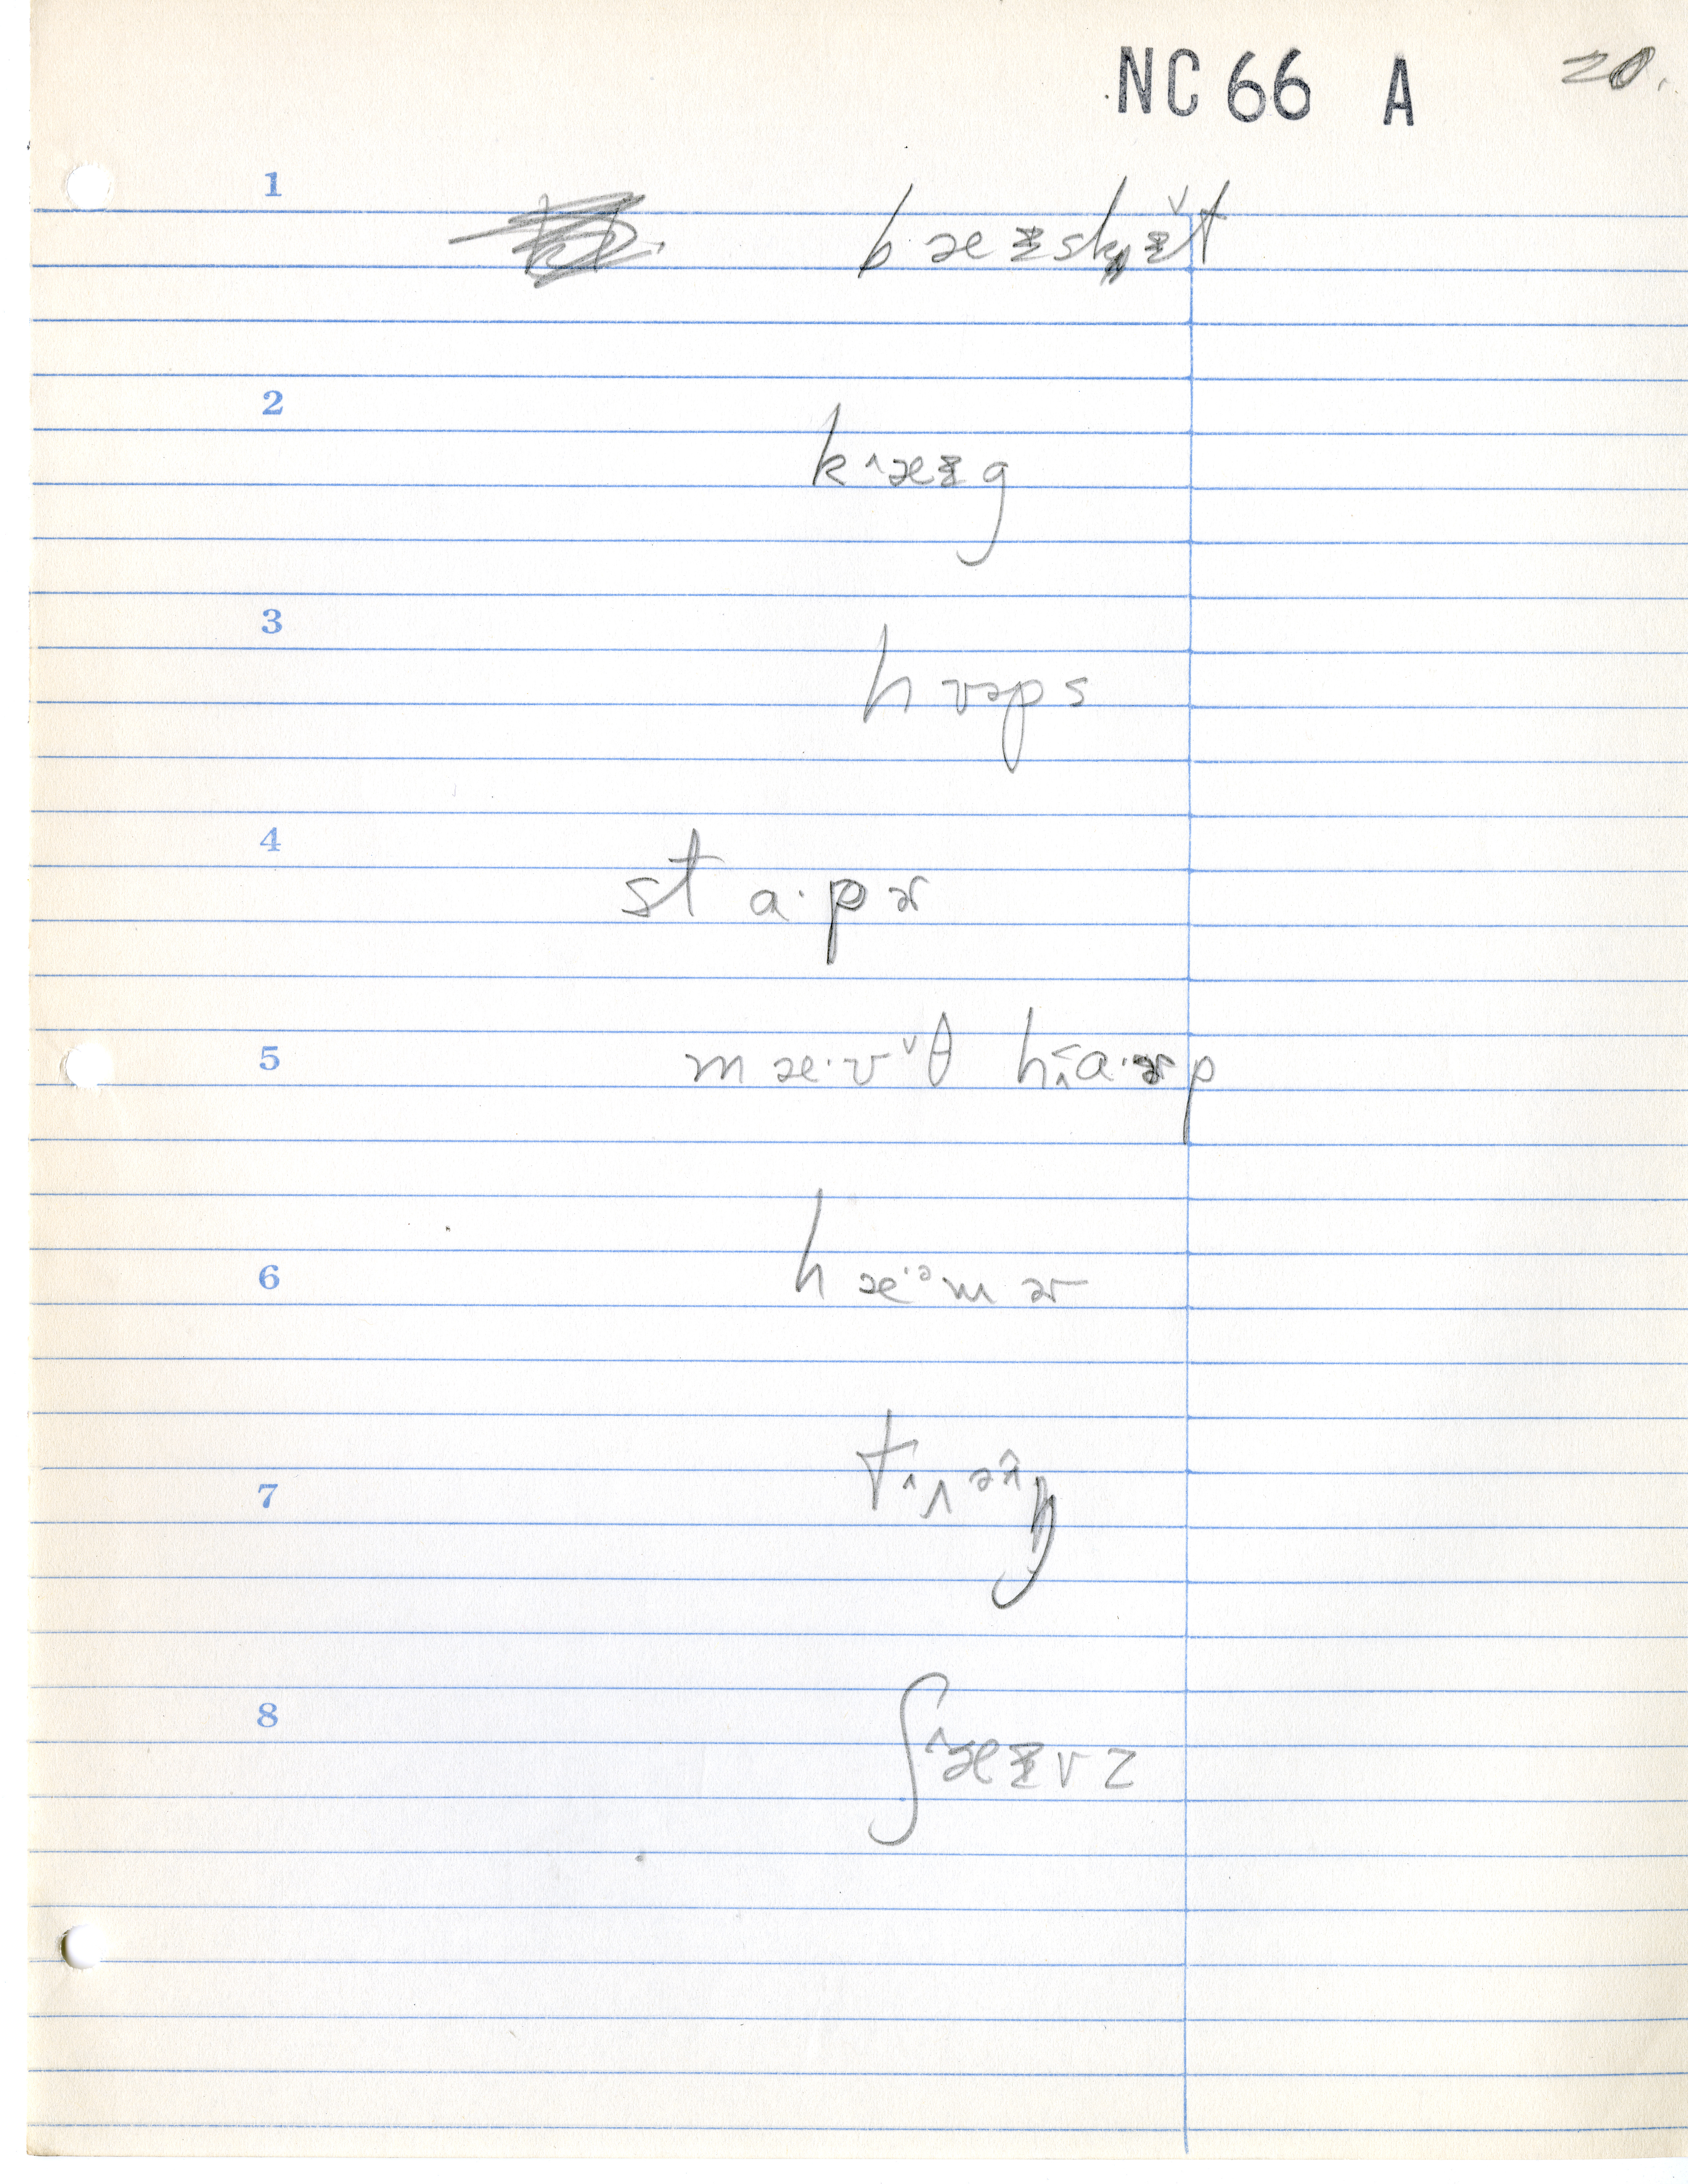 NC 66 A 20.
1
bæᵻskᵻ̌t
2
k^æᵻg
3
hʊəps
4
st a·pɚ
5
mæ·v̌θ h a·ɚp
6
hæ·ᵊmɚ
7
8
ʃ^æᵻvz